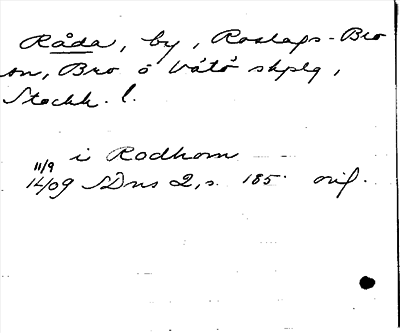 Råda, by, Roslags-Bro
sn, Bro o Vätö skplg,
Stockh. l.
i Rodhom
11/9
1409 SDns 2, s. 185. orig.